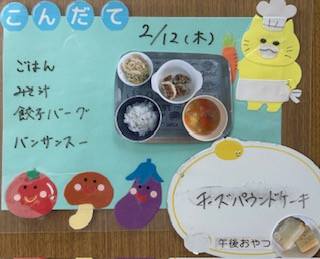 こんだて
2/12(木)
ごはん
みそ汁
餃子バーグ
バンサンスー
チーズパウンドケーキ
午後おやつ